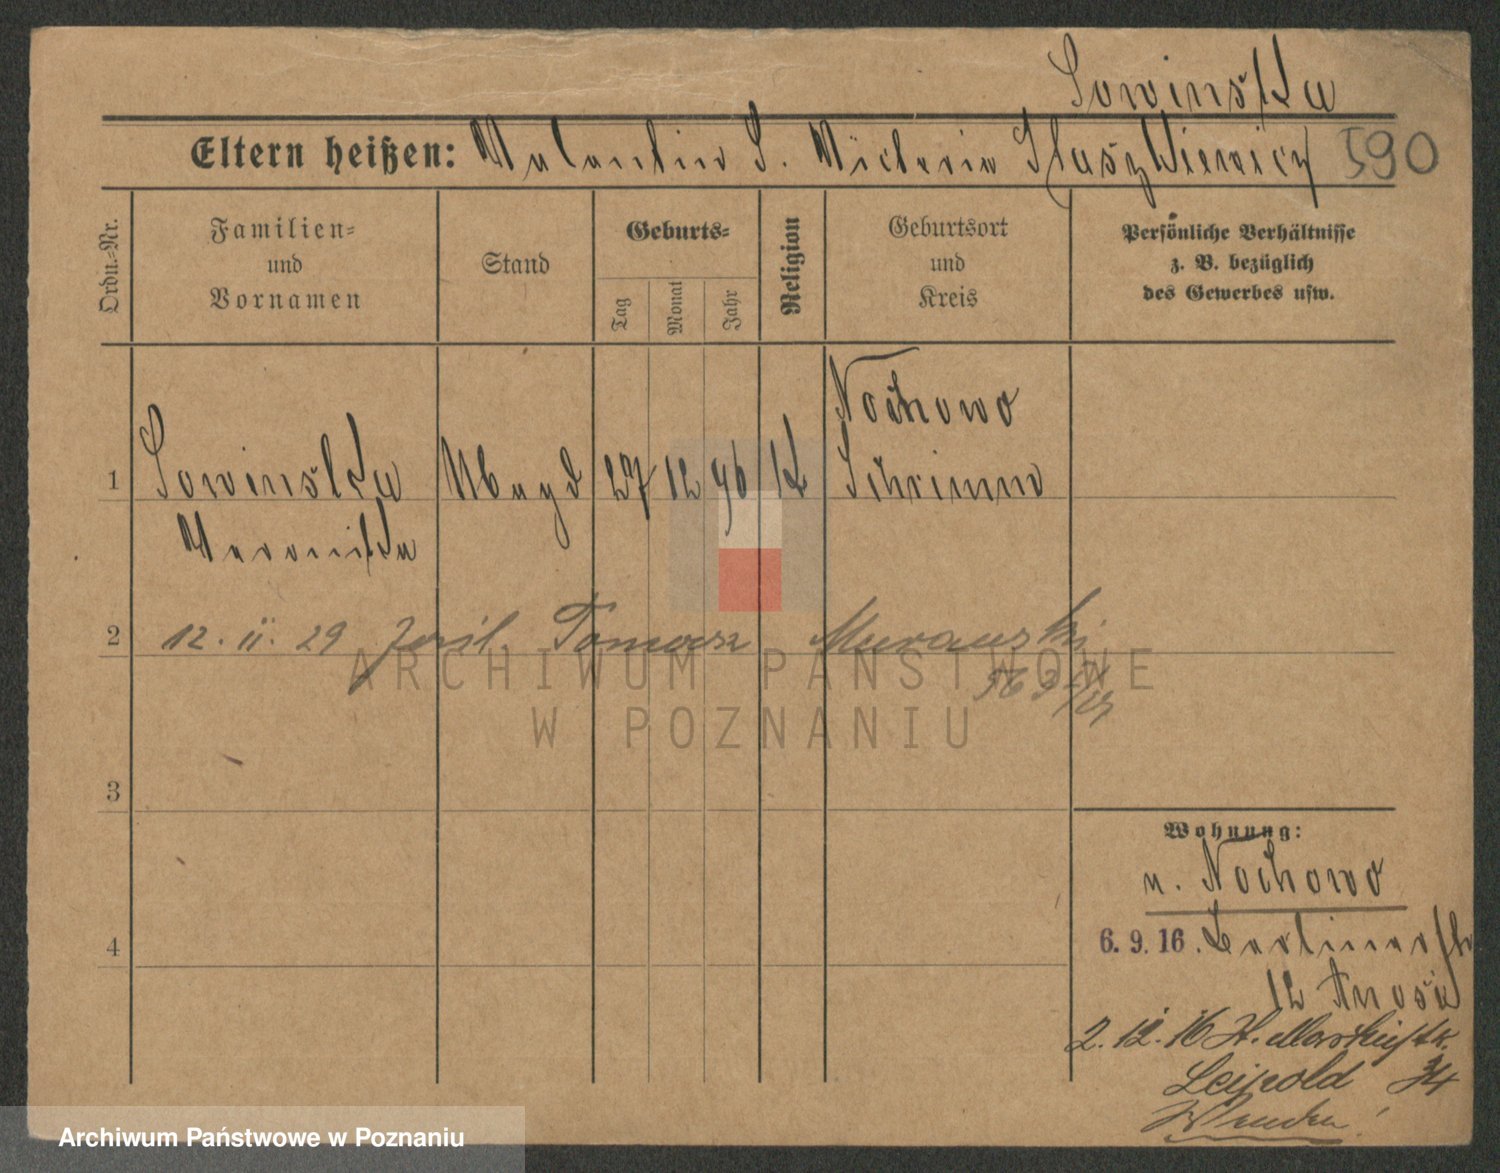 Sowinska
Eltern heißen: Valentin S. Victoria Staszkiewicz 590
Ordn.-Nr.
Familien-
und
Vornamen
Stand
Geburts-
Tag
Monat
Jahr
Religion
Geburtsort
und
Kreis
Persönliche Verhältnisse
z. B. bezüglich
des Gewerbes usw.
1 Sowinska Magd 27 12 96 K Nochowo
Schrimm
Veronika
2 12. 11. 29 Tomasz Murawski
563
3
4
Wohnung:
n. Nochowo
6. 9. 16. Berlinerstr
12
2. 12. 16
Leipold 34
ARCHIWUM PAŃSTWOWE
W POZNANIU
Archiwum Państwowe w Poznaniu